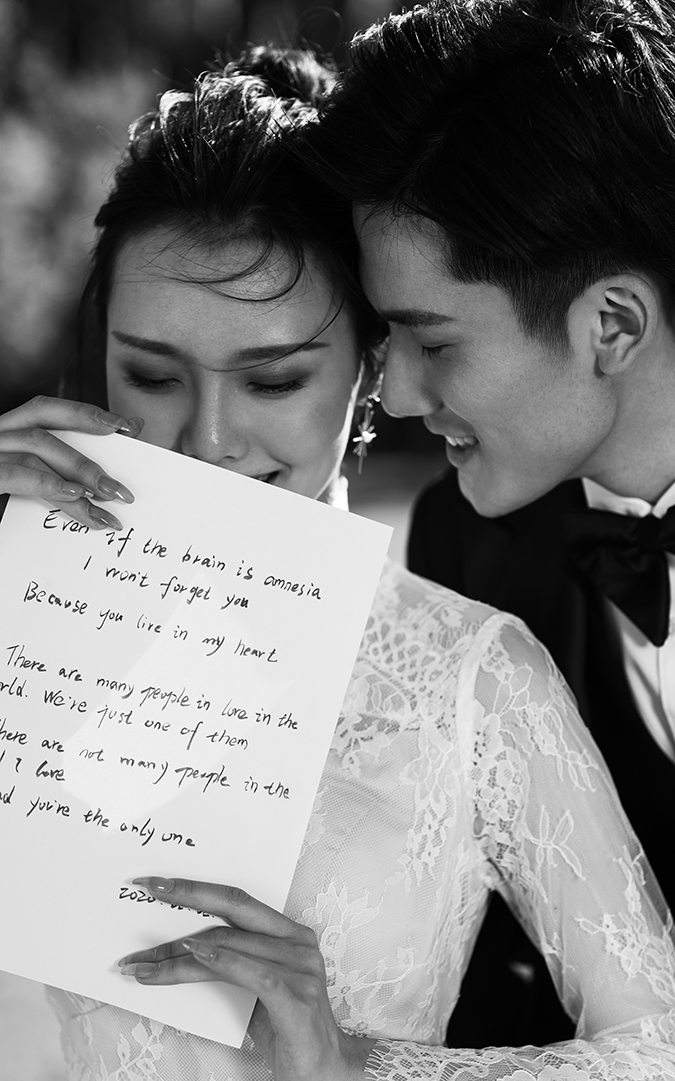 Even if the brain is amnesia
I won't forget you
Because you live in my heart
There are many people in love in the
rld. We're just one of them
here are not many people in the
I love
d you're the only one
2020